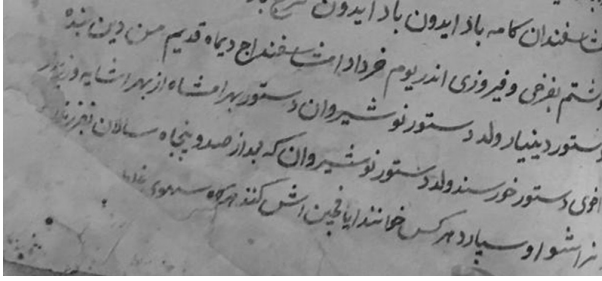 اسفندان کامه باد ایدون باد ایدون ترج باد
نوشتم بفرخی و فیروزی اندر یوم خرداد امشاسفند اج دیماه قدیم من دین بنده
دستور دینیار ولد دستور نوشیروان دستور بهرامشاه از بهر
اخوی دستور خورسند ولد دستور نوشیروان که بداز صد و پنجاه سالان بفرزندان
اشو او سپارد هر کس خوانند ایا فچین اش کنند هرگاه سهوی